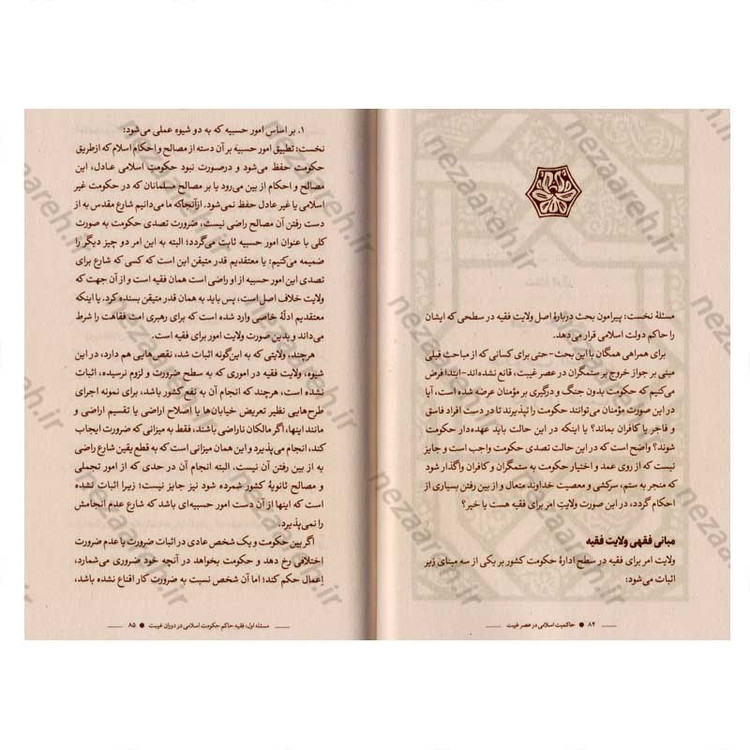 مسئلهٔ نخست: پیرامون بحث دربارهٔ اصل ولایت فقیه در سطحی که ایشان
را حاکم دولت اسلامی قرار می‌دهد.
برای همراهی همگان با این بحث-حتی برای کسانی که از مباحث قبلی
مبنی بر جواز خروج بر ستمگران در عصر غیبت، قانع نشده‌اند-ابتدا فرض
می‌کنیم که حکومت بدون جنگ و درگیری بر مؤمنان عرضه شده است، آیا
در این صورت مؤمنان می‌توانند حکومت را نپذیرند تا در دست افراد فاسق
و فاجر یا کافران بماند؟ یا اینکه در این حالت باید عهده‌دار حکومت
شوند؟ واضح است که در این حالت تصدی حکومت واجب است و جایز
نیست که از روی عمد و اختیار حکومت به ستمگران و کافران واگذار شود
که منجر به ستم، سرکشی و معصیت خداوند متعال و از بین رفتن بسیاری از
احکام گردد، در این صورت ولایتِ امر برای فقیه هست یا خیر؟
مبانی فقهی ولایت فقیه
ولایت امر برای فقیه در سطح ادارهٔ حکومت کشور بر یکی از سه مبنای زیر
اثبات می‌شود:
۸۴ ● حاکمیت اسلامی در عصر غیبت
۱. بر اساس امور حسبیه که به دو شیوه عملی می‌شود:
نخست: تطبیق امور حسبیه بر آن دسته از مصالح و احکام اسلام که ازطریق
حکومت حفظ می‌شود و درصورت نبود حکومت اسلامی عادل، این
مصالح و احکام از بین می‌رود یا بر مصالح مسلمانان که در حکومت غیر
اسلامی یا غیر عادل حفظ نمی‌شود. ازآنجاکه ما می‌دانیم شارع مقدس به از
دست رفتن آن مصالح راضی نیست، ضرورت تصدی حکومت به صورت
کلی با عنوان امور حسبیه ثابت می‌گردد؛ البته به این امر دو چیز دیگر را
ضمیمه می‌کنیم: یا معتقدیم قدر متیقن این است که کسی که شارع برای
تصدی این امور حسبیه از او راضی است همان فقیه است و از آن جهت که
ولایت خلاف اصل است، پس باید به همان قدر متیقن بسنده کرد. یا اینکه
معتقدیم ادلهٔ خاصی وارد شده است که برای رهبری امت فقاهت را شرط
می‌داند و بدین صورت ولایت امور برای فقیه است.
هرچند، ولایتی که به این‌گونه اثبات شد، نقص‌هایی هم دارد، در این
شیوه، ولایت فقیه در اموری که به سطح ضرورت و لزوم نرسیده، اثبات
نشده است، هرچند که انجام آن به نفع کشور باشد، برای نمونه اجرای
طرح‌هایی نظیر تعریض خیابان‌ها یا اصلاح اراضی یا تقسیم اراضی و
مانند اینها، اگر مالکان ناراضی باشند، فقط به میزانی که ضرورت ایجاب
کند، انجام می‌پذیرد و این همان میزانی است که به قطع یقین شارع راضی
به از بین رفتن آن نیست. البته انجام آن در حدی که از امور تجملی
و مصالح ثانویهٔ کشور شمرده شود نیز جایز نیست؛ زیرا اثبات نشده
است که اینها از آن دست امور حسبیه‌ای باشد که شارع عدم انجامش
را نمی‌پذیرد.
اگر بین حکومت و یک شخص عادی در اثبات ضرورت یا عدم ضرورت
اختلافی رخ دهد و حکومت بخواهد در آنچه خود ضروری می‌شمارد،
اِعمال حکم کند؛ اما آن شخص نسبت به ضرورت کار اقناع نشده باشد،
مسئله اول: فقیه حاکم حکومت اسلامی در دوران غیبت ● ۸۵
nezaareh.ir